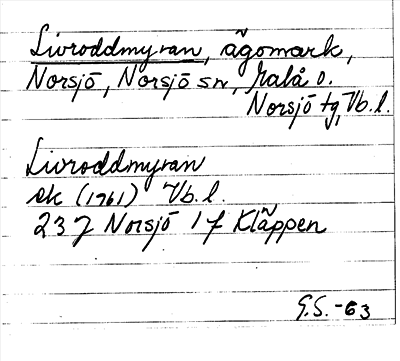 Livroddmyran, ägomark,
Norsjö, Norsjö sn, Malå o.
Norsjö tg, Vb.l.
Livroddmyran
ek (1961) Vb.l.
23 J Norsjö 1 f Kläppen
G.S. -63